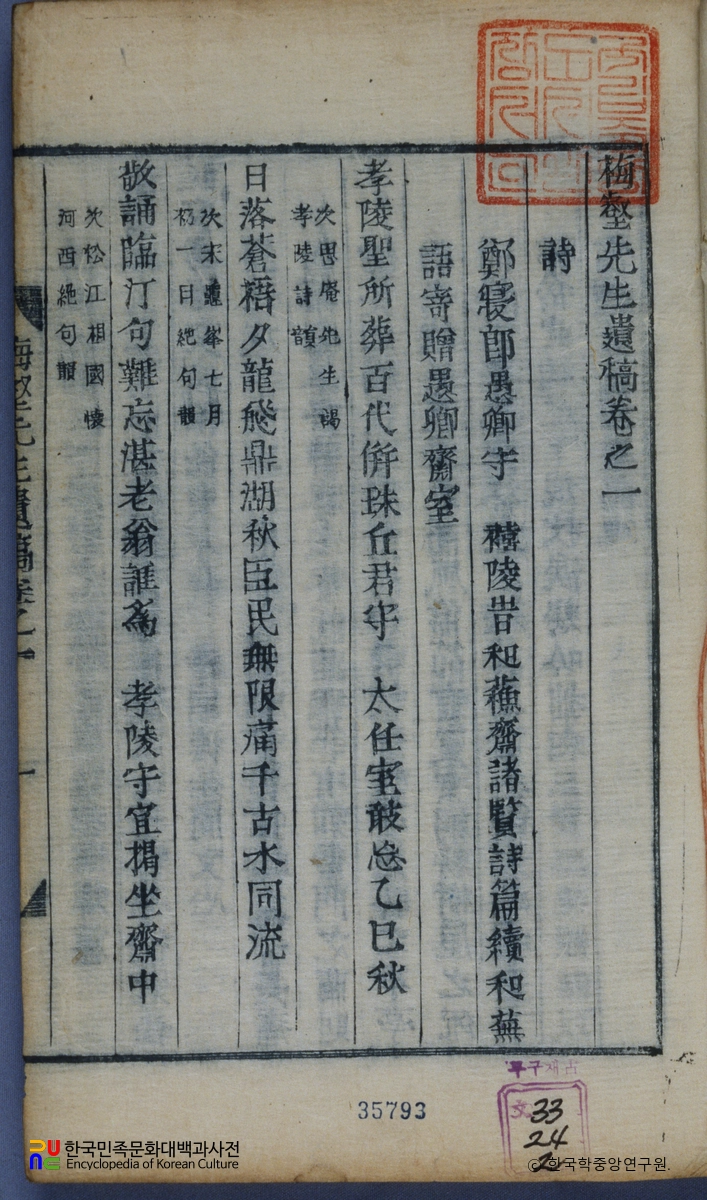 梅壑先生遺稿卷之一
詩
鄭寢郞愚卿守　禧陵昔和蘓齋諸賢詩篇續和蕪
語寄贈愚卿齋室
孝陵聖所葬百代倂珠丘君守　太任室敢忘乙巳秋
次思庵先生謁
孝陵詩韻
日落蒼梧夕龍飛鼎湖秋臣民無限痛千古水同流
次宋龜峯七月
初一日絶句韻
敬誦臨汀句難忘湛老翁誰爲　孝陵守宜揭坐齋中
次松江相國懷
河西絶句韻
梅壑先生遺稿卷之一
一
35793
33
24
2
한국민족문화대백과사전
Encyclopedia of Korean Culture
ⓒ 한국학중앙연구원.